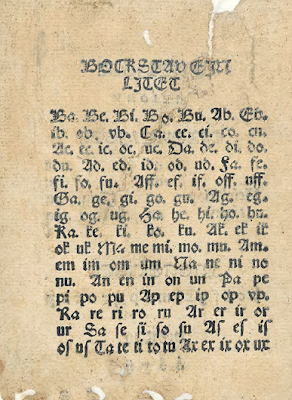 BOCKSTAVEJIN
LITET
Ba. Be. Bi. Bo. Bu. Ab. Eb.
ib. ob. vb. Ca. ce. ci. co. cu.
Ac. ec. ic. oc. uc. Da. de. di. do.
du. Ad. ed. id. od. ud. Fa. fe.
fi. fo. fu. Aff. ef. if. off. uff.
Ga. ge. gi. go. gu. Ag. eg.
ig. og. ug. Ha. he. hi. ho. hu.
Ka. ke. ki. ko. ku. Ak. ek ik
ok uk Ma me mi. mo. mu. Am.
em im om um Na ne ni no
nu. An en in on un Pa pe
pi po pu Ap ep ip op vp.
Ra re ri ro ru Ar er ir or
ur Sa se si so su As es is
os us Ta te ti to tu Ax ex ix ox ux